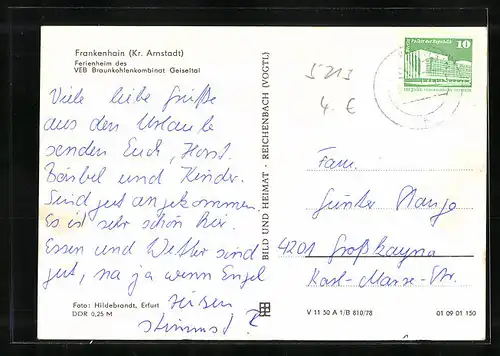 Frankenhain (Kr. Arnstadt)
Ferienheim des
VEB Braunkohlenkombinat Geiseltal
Viele liebe Grüße
aus den Urlaube
senden Euch, Horst.
Bärbel und Kinder.
Sind gut angekommen
Es ist sehr schön hir.
Essen und Wetter sind
gut, na ja wenn Engel
reisen
stimmst ?
Foto: Hildebrandt, Erfurt
DDR 0,25 M
BILD UND HEIMAT · REICHENBACH (VOGTL)
5213
4. €
10
Fam.
Günter
4201 Großkayna
Karl-Marx-Str.
V 11 50 A 1/B 810/78
01 09 01 150